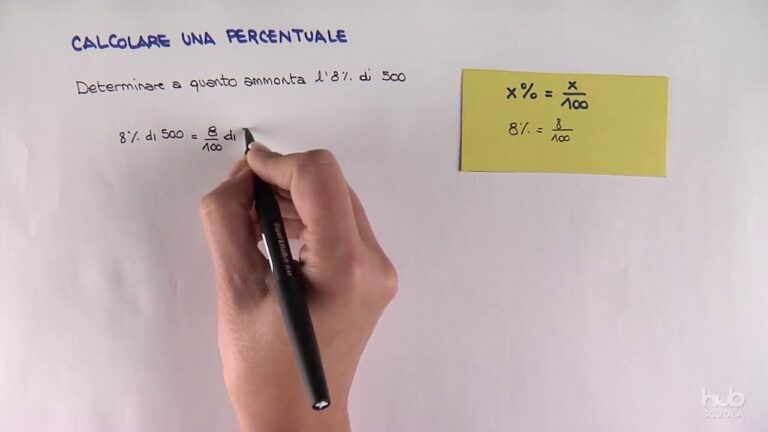 CALCOLARE UNA PERCENTUALE
Determinare a quanto ammonta l'8% di 500
x% = x/100
8% = 8/100
8% di 500 = 8/100 di
hub
SCUOLA